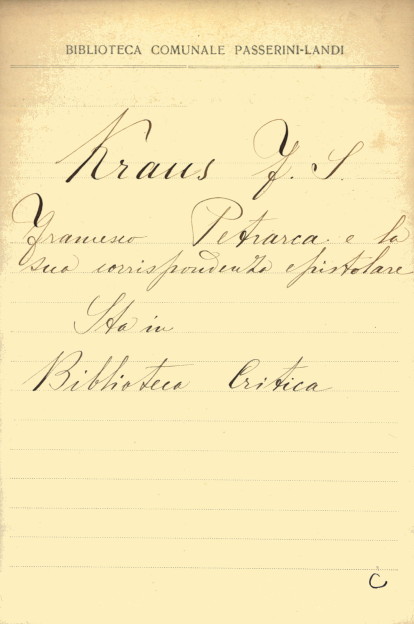 BIBLIOTECA COMUNALE PASSERINI-LANDI
Kraus F. S.
Francesco Petrarca e la
sua corrispondenza epistolare
Sta in
Biblioteca Critica
C